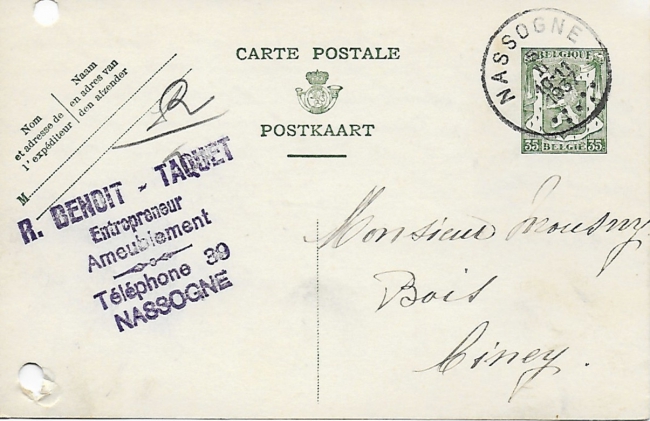 CARTE POSTALE
POSTKAART
Nom
et adresse de
l'expéditeur
Naam
en adres van
den afzender
M
R
R. BENOIT - TAQUET
Entrepreneur
Ameublement
Téléphone 39
NASSOGNE
NASSOGNE
10-11
193
BELGIQUE
35 BELGIË 35
Monsieur Mousny
Bois
Ciney.